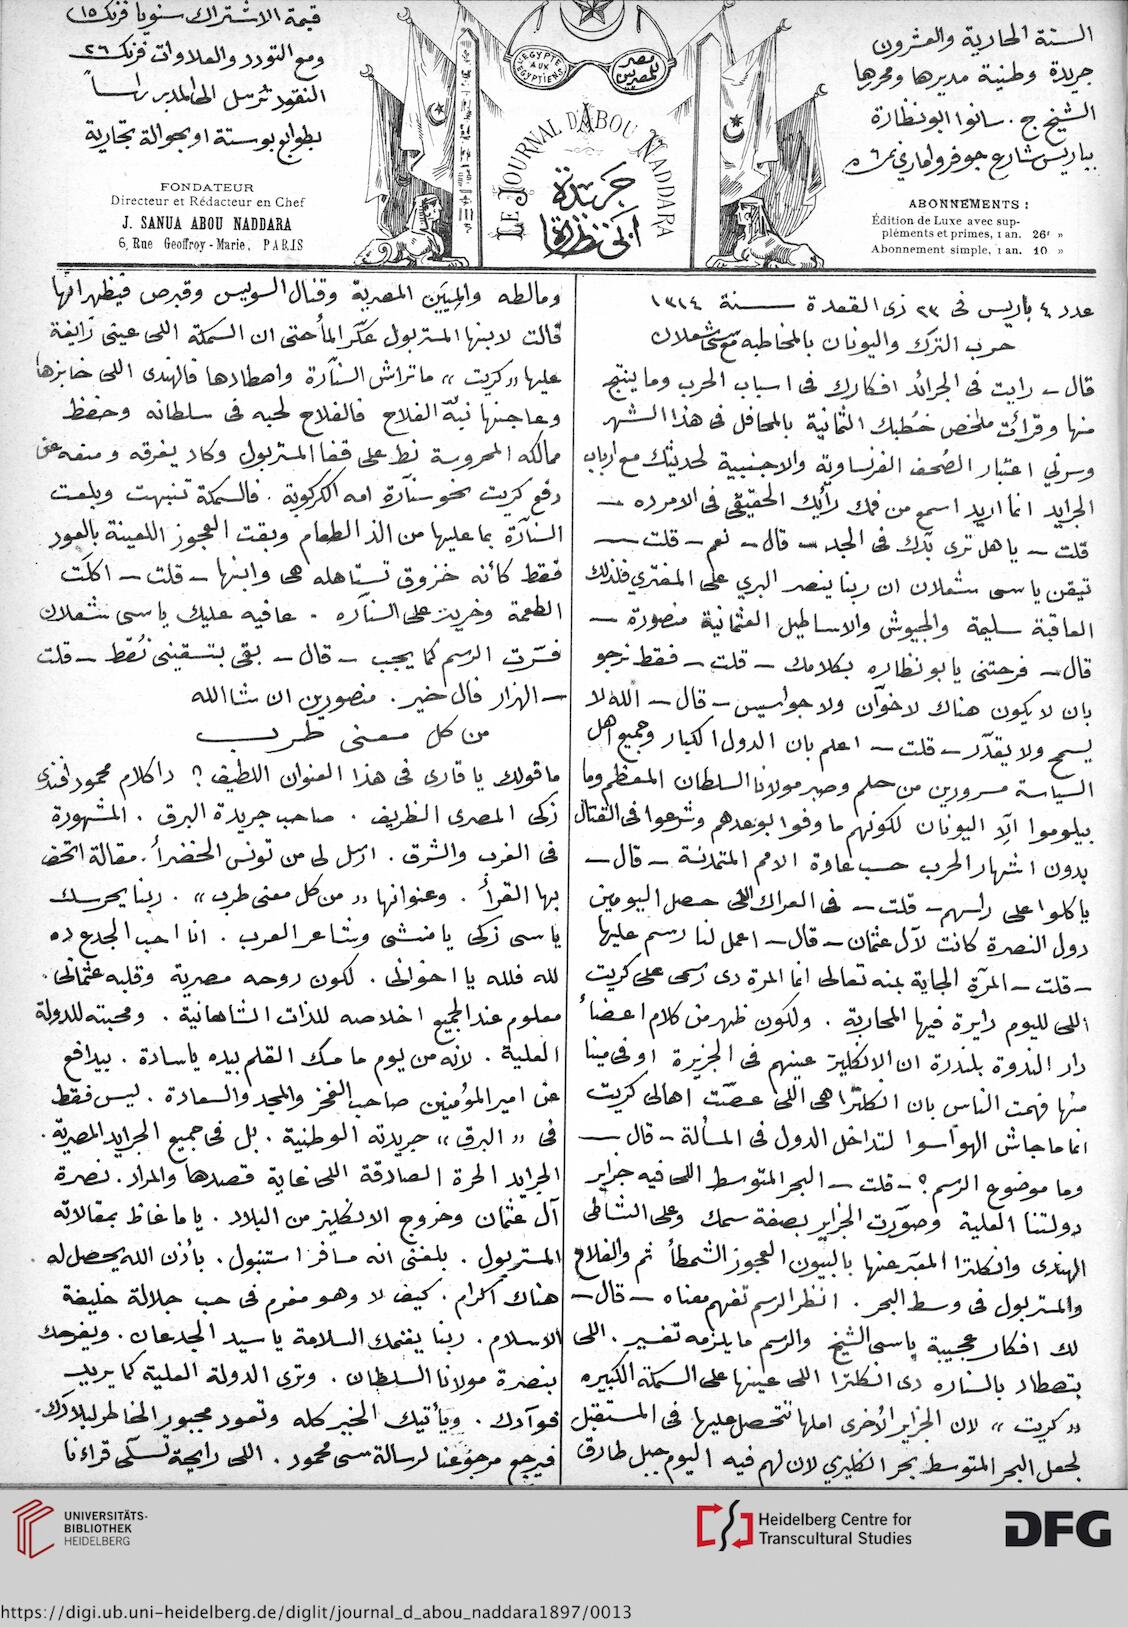 السنة الحادية والعشرون
جريدة وطنية مديرها ومحررها
الشيخ ج. سانوا ابو نظارة
بباريس شارع جوفروا ماري نمر ٦
ABONNEMENTS :
Édition de Luxe avec sup-
pléments et primes, 1 an. 26f »
Abonnement simple, 1 an. 10 »
L'EGYPTE
AUX
EGYPTIENS
مصر
للمصريين
LE JOURNAL D'ABOU NADDARA
جريدة
ابي نظارة
قيمة الاشتراك سنويا فرنك ١٥
ومع التورد والعلاوات فرنك ٢٦
النقود ترسل الى المدير راساً
بطوابع بوستة او بحوالة تجارية
FONDATEUR
Directeur et Rédacteur en Chef
J. SANUA ABOU NADDARA
6, Rue Geoffroy-Marie, PARIS
عدد ٤ باريس فى ٢٣ ذى القعدة سنة ١٣١٤
حرب الترك واليونان بالمخاطبه مع سى شعلان
قال – رايت فى الجرائد افكارك فى اسباب الحرب وما ينتج
منها وقرائت ملخص خطبك الثمانية بالمحافل فى هذا الشهر
وسرني اعتبار الصحف الفرنساوية والاجنبية لحديثك مع ارباب
الجرايد انما اريد اسمع من فمك رأيك الحقيقي فى الامر ده –
قلت – يا هل ترى بدك فى الجد – قال – نعم – قلت –
تيقن يا سى شعلان ان ربنا ينصر البري على المفترى فلذلك
العاقبة سليمة والجيوش والاساطيل العثمانية منصورة –
قال – فرحتنى يا بو نظاره بكلامك – قلت – فقط نرجو
بان لا يكون هناك لا خوآن ولا جواسيس – قال – الله لا
يسمح ولا يقدّر – قلت – اعلم بان الدول الكبار وجميع اهل
السياسة مسرورين من حلم وصبر مولانا السلطان المعظم وما
بيلوموا الّا اليونان لكونهم ما وفوا بوعدهم وشرعوا فى القتال
بدون اشهار الحرب حسب عادة الامم المتمدنة – قال –
ياكلوا على راسهم – قلت – فى العراك اللى حصل اليومين
دول النصرة كانت لآل عثمان – قال – اعمل لنا رسم عليها
– قلت – المرّة الجاية بمنه تعالى انما المرة دى رسمى على كريت
اللى لليوم دايرة فيها المحاربة . ولكون ظهر من كلام اعضاء
دار الندوة بلندرة ان الانكليز عينهم فى الجزيرة او فى مينا
منها فهمت الناس بان انكلترا هى اللى عصّت اهالى كريت
انما ما جاش الهوا سوا لتداخل الدول فى المسألة – قال –
وما موضوع الرسم ؟ – قلت – البحر المتوسط اللى فيه جزاير
دولتنا العلية وصوّرت الجزاير بصفة سمك وعلى الشاطى
الهندى وانكلترا المعبّر عنها بالبيون العجوز الشمطأ ثم والفلاح
والمستر بول فى وسط البحر . انظر الرسم تفهم معناه – قال –
لك افكار عجيبة ياسى الشيخ والرسم ما يلزمه تفسير . اللى
بتصطاد بالسناره دى انكلترا اللى عينها على السمكة الكبيره
„ كريت “ لان الجزاير الأخرى املها تتحصل عليها فى المستقبل
لجعل البحر المتوسط بحر انكليزي لان لهم فيه اليوم جبل طارق
ومالطه والمينين المصرية وقنال السويس وقبرص فيظهر انها
قالت لابنها المستر بول عكّر المأ حتى ان السمكة اللى عينى زايغة
عليها „ كريت “ ما تراش السنآرة واصطادها فالهندى اللى خابزها
وعاجنها نبّه الفلاح فالفلاح لحبه فى سلطانه وحفظ
ممالكه المحروسة نط على قفا المستر بول وكاد يغرقه ومنعه عن
دفع كريت نحو سنآرة امه الكركوبة . فالسمكة تنبهت وبلعت
السنآرة بما عليها من الذ الطعام وبقت العجوز اللعينة بالعود
فقط كأنه خزوق تستاهله هى وابنها – قلت – اكلت
الطعمة وخريت على السنآره . عافيه عليك يا سى شعلان
فسّرت الرسم كما يجب – قال – بقى بتسقينى نُقط – قلت
– الهزار فال خير . منصورين ان شا الله
من كل معنى طرب
ما قولك يا قارى فى هذا العنوان اللطيف ؟ دا كلام محمود افندى
زكى المصرى الظريف . صاحب جريدة البرق . المشهورة
فى الغرب والشرق . ارسل لى من تونس الخضرأ . مقالة اتحف
بها القرأ . وعنوانها „ من كل معنى طرب “ . ربنا يحرسك
ياسى زكى يا منشى وشاعر العرب . انا احب الجدع ده
لله فلله يا اخوانى . لكون روحه مصرية وقلبه عثمانى .
معلوم عند الجميع اخلاصه للذات الشاهانية . ومحبته للدولة
العلية . لانه من يوم ما مسك القلم بيده ياسادة . بيدافع
عن امير المؤمنين صاحب الفخر والمجد والسعادة . ليس فقط
فى „ البرق “ جريدته الوطنية . بل فى جميع الجرايد المصرية .
الجرايد الحرة الصادقة اللى غاية قصدها والمراد . نصرة
آل عثمان وخروج الانكليز من البلاد . ياما غاظ بمقالاته
المستر بول . بلغنى انه مسافر استنبول . باذن الله يحصل له
هناك اكرام . كيف لا وهو مغرم فى حب جلالة خليفة
الاسلام . ربنا يغنمك السلامة يا سيد الجدعان . ويفرحك
بنصرة مولانا السلطان . وترى الدولة العلية كما يريد
فوآدك . ويأتيك الخير كله وتعود مجبور الخاطر لبلادك .
فيرجع مرجوعنا لرسالة سى محمود . اللى رايحة تسلّى قراءنا
UNIVERSITÄTS-
BIBLIOTHEK
HEIDELBERG
Heidelberg Centre for
Transcultural Studies
DFG
https://digi.ub.uni-heidelberg.de/diglit/journal_d_abou_naddara1897/0013